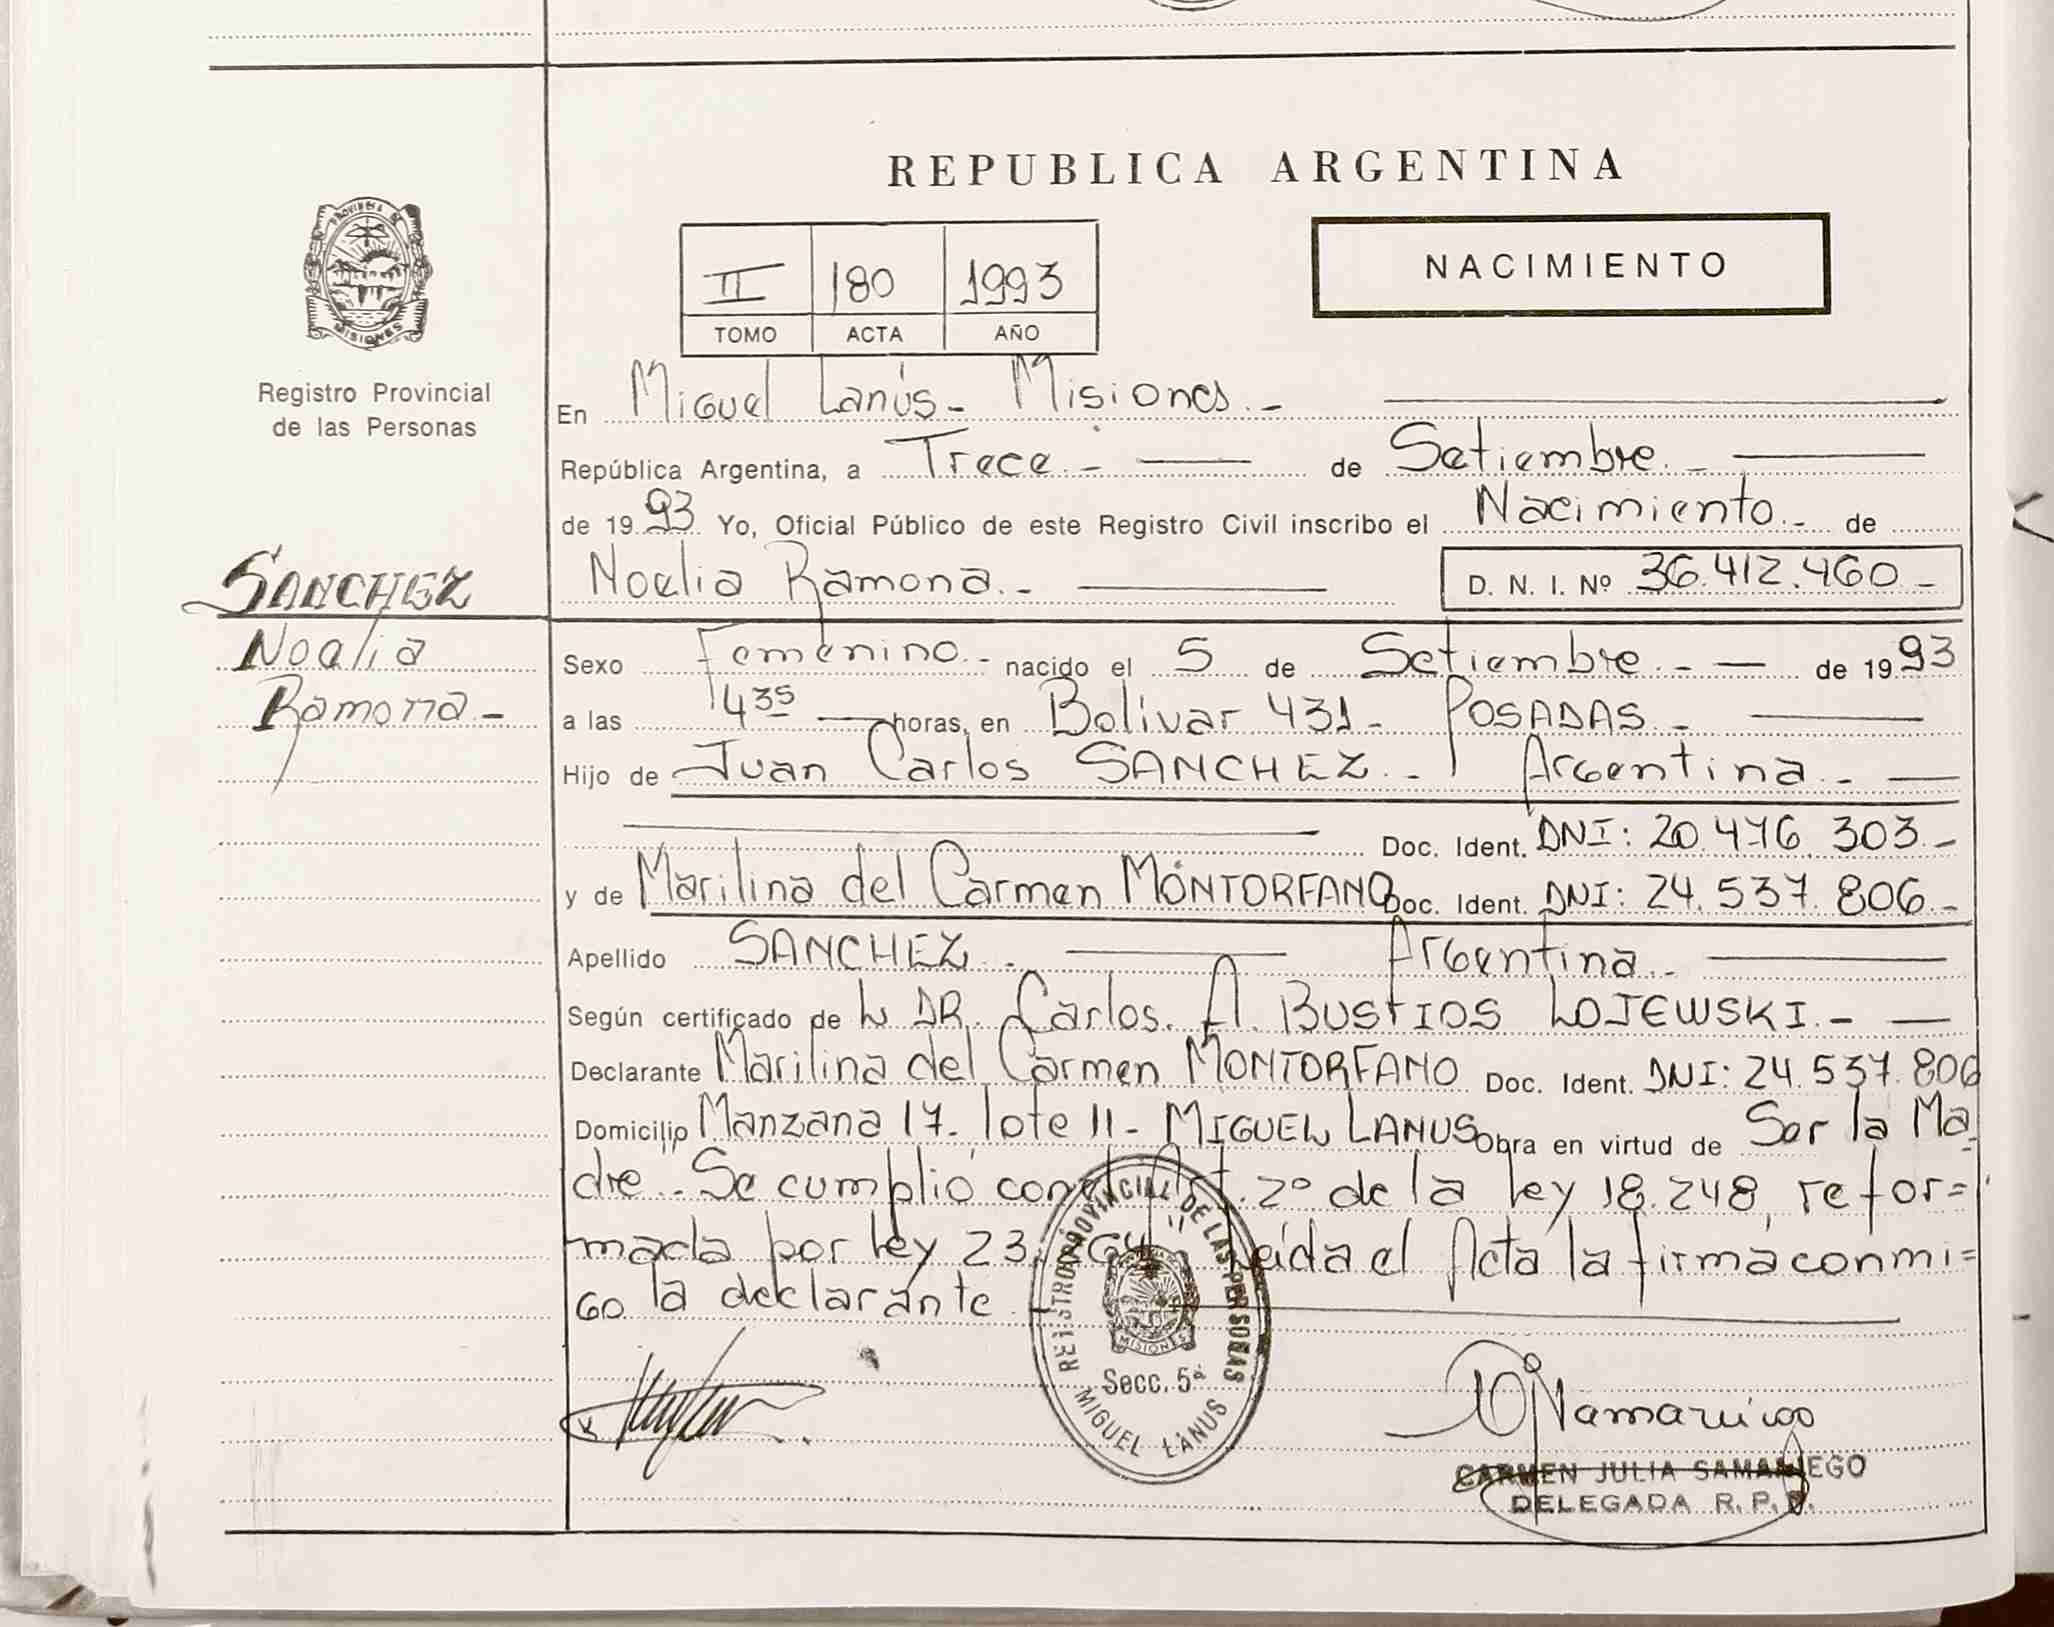 REPUBLICA ARGENTINA
PROVINCIA DE
MISIONES
Registro Provincial
de las Personas
II 180 1993
TOMO ACTA AÑO
NACIMIENTO
En Miguel Lanús - Misiones.-
República Argentina, a Trece.- de Setiembre.-
de 1993 Yo, Oficial Público de este Registro Civil inscribo el Nacimiento.- de
Noelia Ramona.- D. N. I. Nº 36.412.460-
SANCHEZ
Noelia
Ramona-
Sexo Femenino.- nacido el 5 de Setiembre.- de 1993
a las 4 35 horas, en Bolivar 431- POSADAS.-
Hijo de Juan Carlos SANCHEZ.- Argentina.-
Doc. Ident. DNI: 20.476.303.-
y de Marilina del Carmen MONTORFANO Doc. Ident. DNI: 24.537.806.-
Apellido SANCHEZ.- Argentina.-
Según certificado de DR. Carlos. A. BUSTIOS LOJEWSKI.-
Declarante Marilina del Carmen MONTORFANO Doc. Ident. DNI: 24.537.806
Domicilio Manzana 17- lote 11- MIGUEL LANUS Obra en virtud de Ser la Ma-
dre.. Se cumplió con el Art. 2º de la ley 18.248, refor=
mada por ley 23. Leída el Acta la firma conmi=
go la declarante.-
REGISTRO PROVINCIAL DE LAS PERSONAS
MISIONES
Secc. 5ª
MIGUEL LANUS
CARMEN JULIA SAMANIEGO
DELEGADA R. P. P.